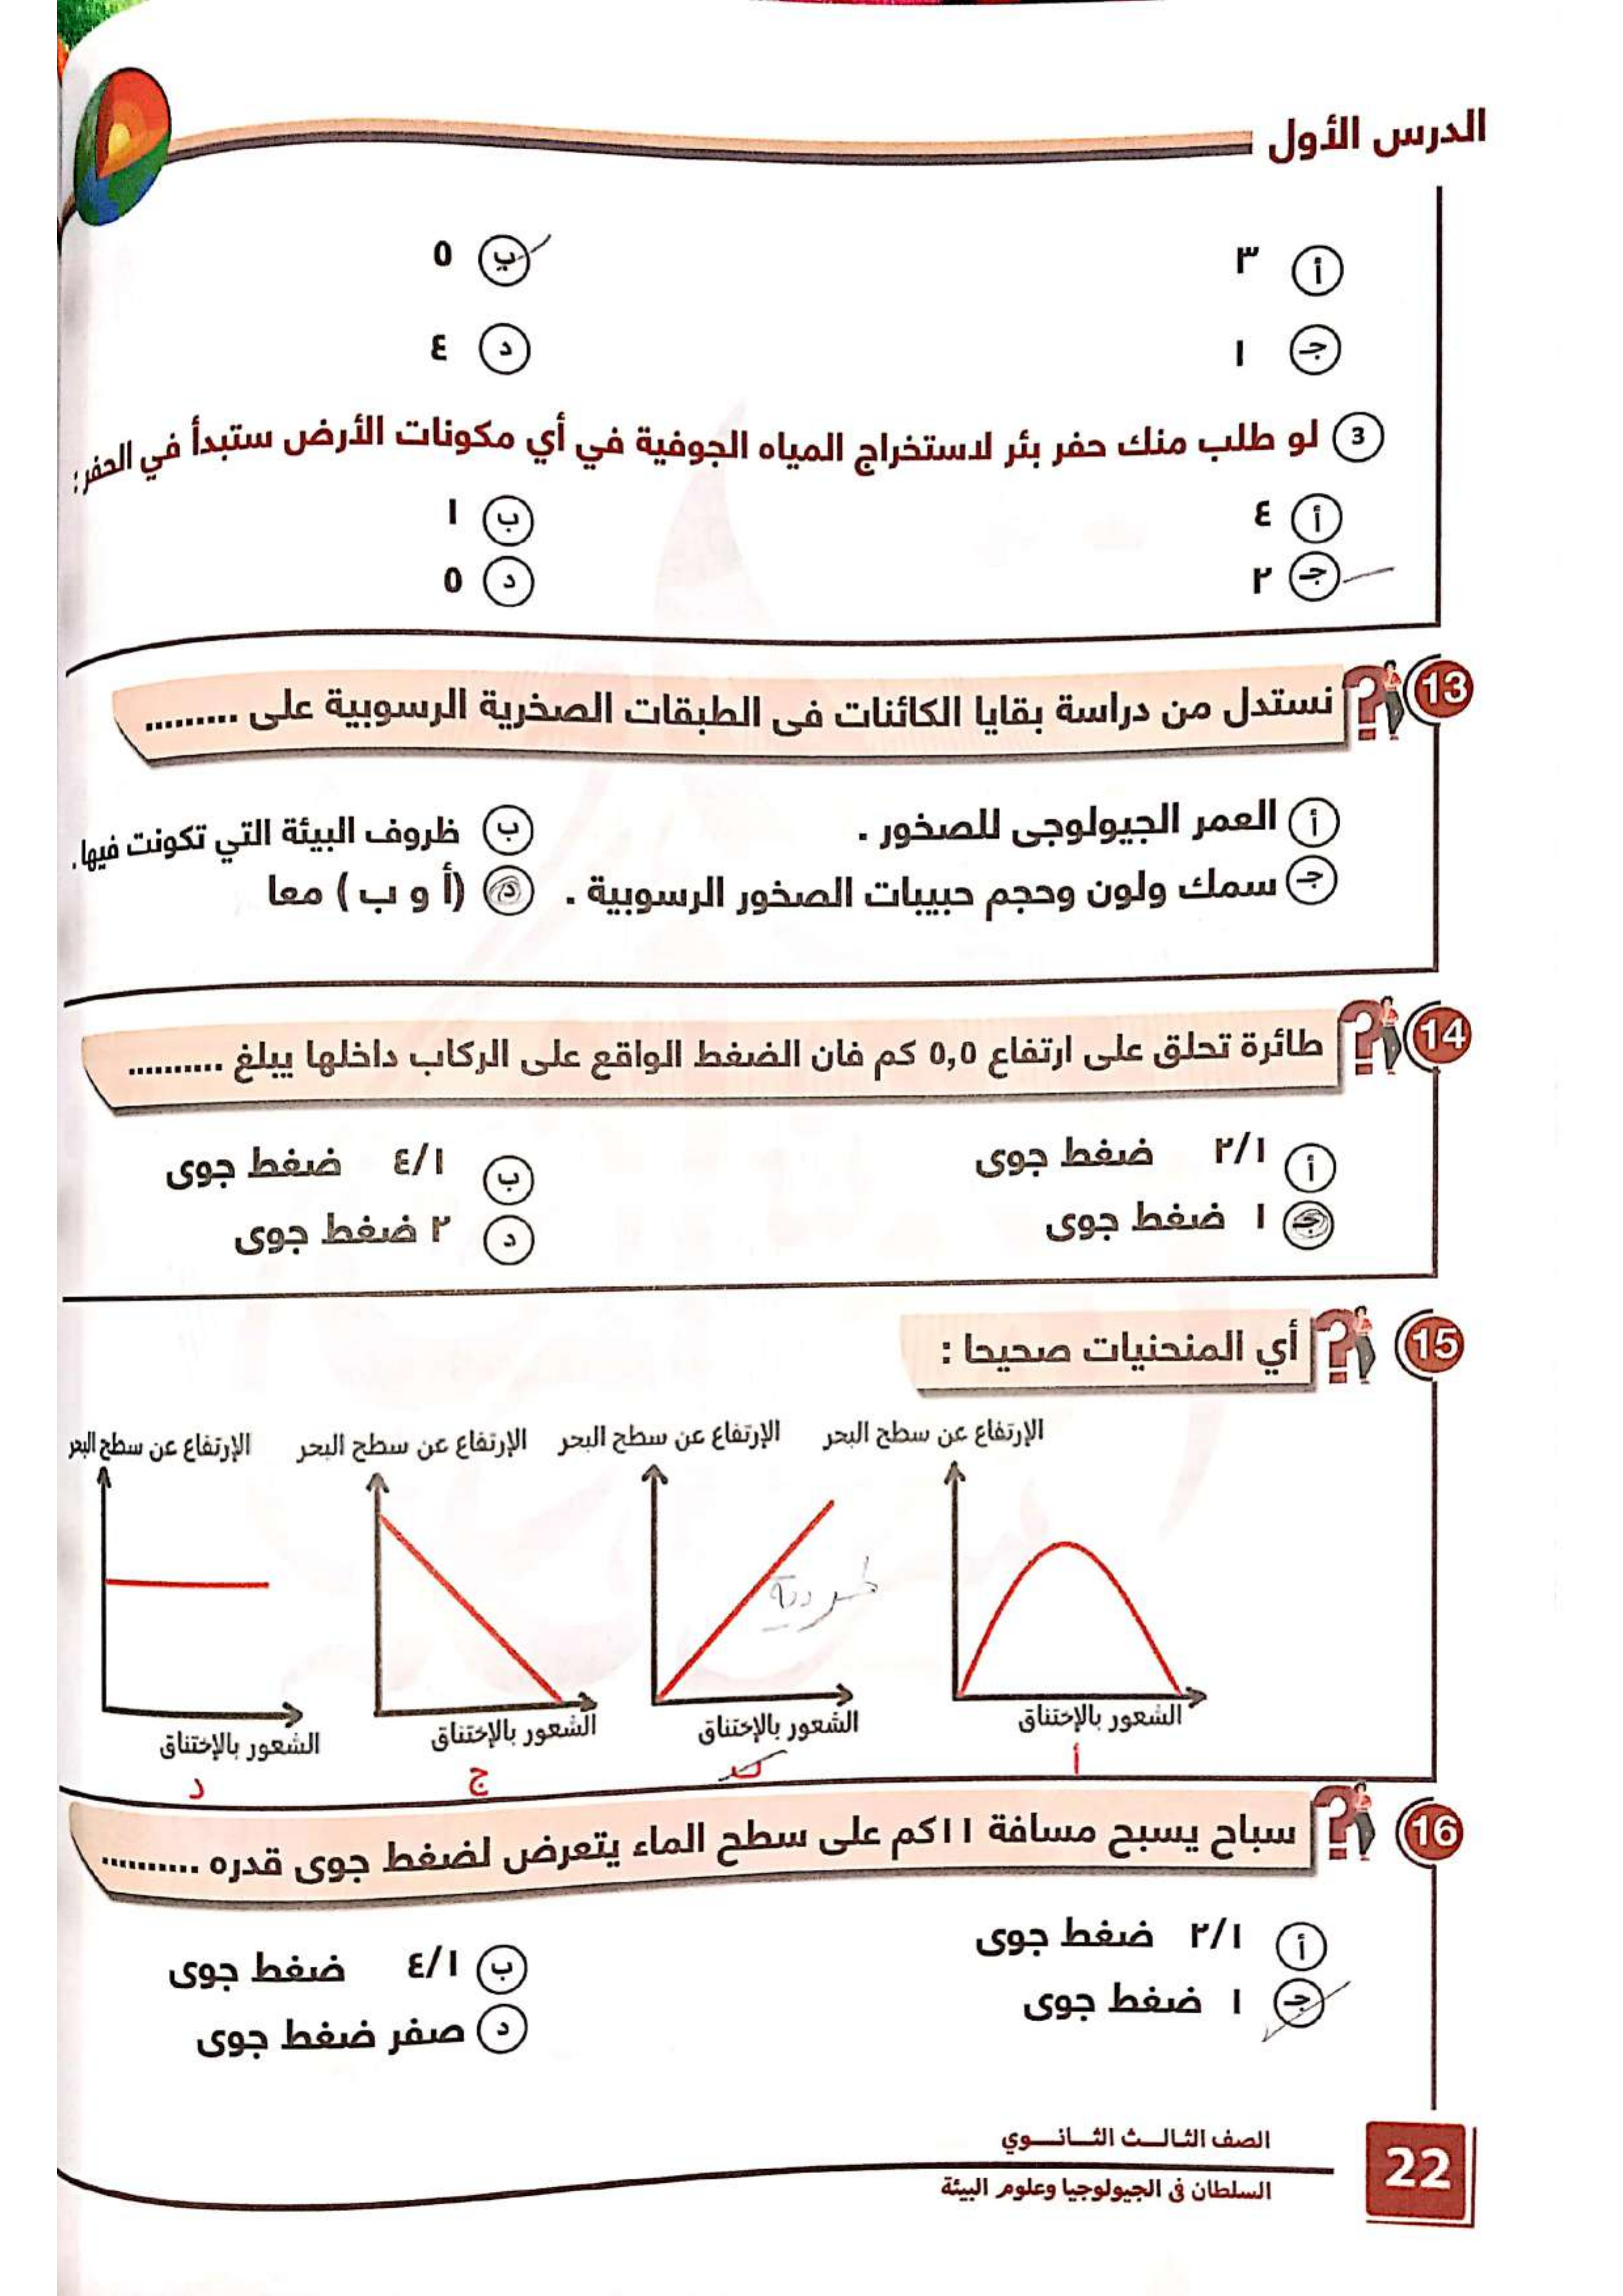 الدرس الأول
أ ٣ ب ٥
جـ ١ د ٤
3 لو طلب منك حفر بئر لاستخراج المياه الجوفية في أي مكونات الأرض ستبدأ في الحفر :
أ ٤ ب ١
جـ ٢ د ٥
13 نستدل من دراسة بقايا الكائنات فى الطبقات الصخرية الرسوبية على .........
أ العمر الجيولوجى للصخور . ب ظروف البيئة التي تكونت فيها .
جـ سمك ولون وحجم حبيبات الصخور الرسوبية . د (أ و ب ) معا
14 طائرة تحلق على ارتفاع ٥,٥ كم فان الضغط الواقع على الركاب داخلها يبلغ ..........
أ ٢/١ ضغط جوى ب ٤/١ ضغط جوى
جـ ١ ضغط جوى د ٢ ضغط جوى
15 أي المنحنيات صحيحا :
الإرتفاع عن سطح البحر الإرتفاع عن سطح البحر الإرتفاع عن سطح البحر الإرتفاع عن سطح البحر
طردية
الشعور بالإختناق الشعور بالإختناق الشعور بالإختناق الشعور بالإختناق
أ ب ج د
16 سباح يسبح مسافة ١١كم على سطح الماء يتعرض لضغط جوى قدره ..........
أ ٢/١ ضغط جوى ب ٤/١ ضغط جوى
جـ ١ ضغط جوى د صفر ضغط جوى
الصف الثالـث الثـانــوي
السلطان في الجيولوجيا وعلوم البيئة
22